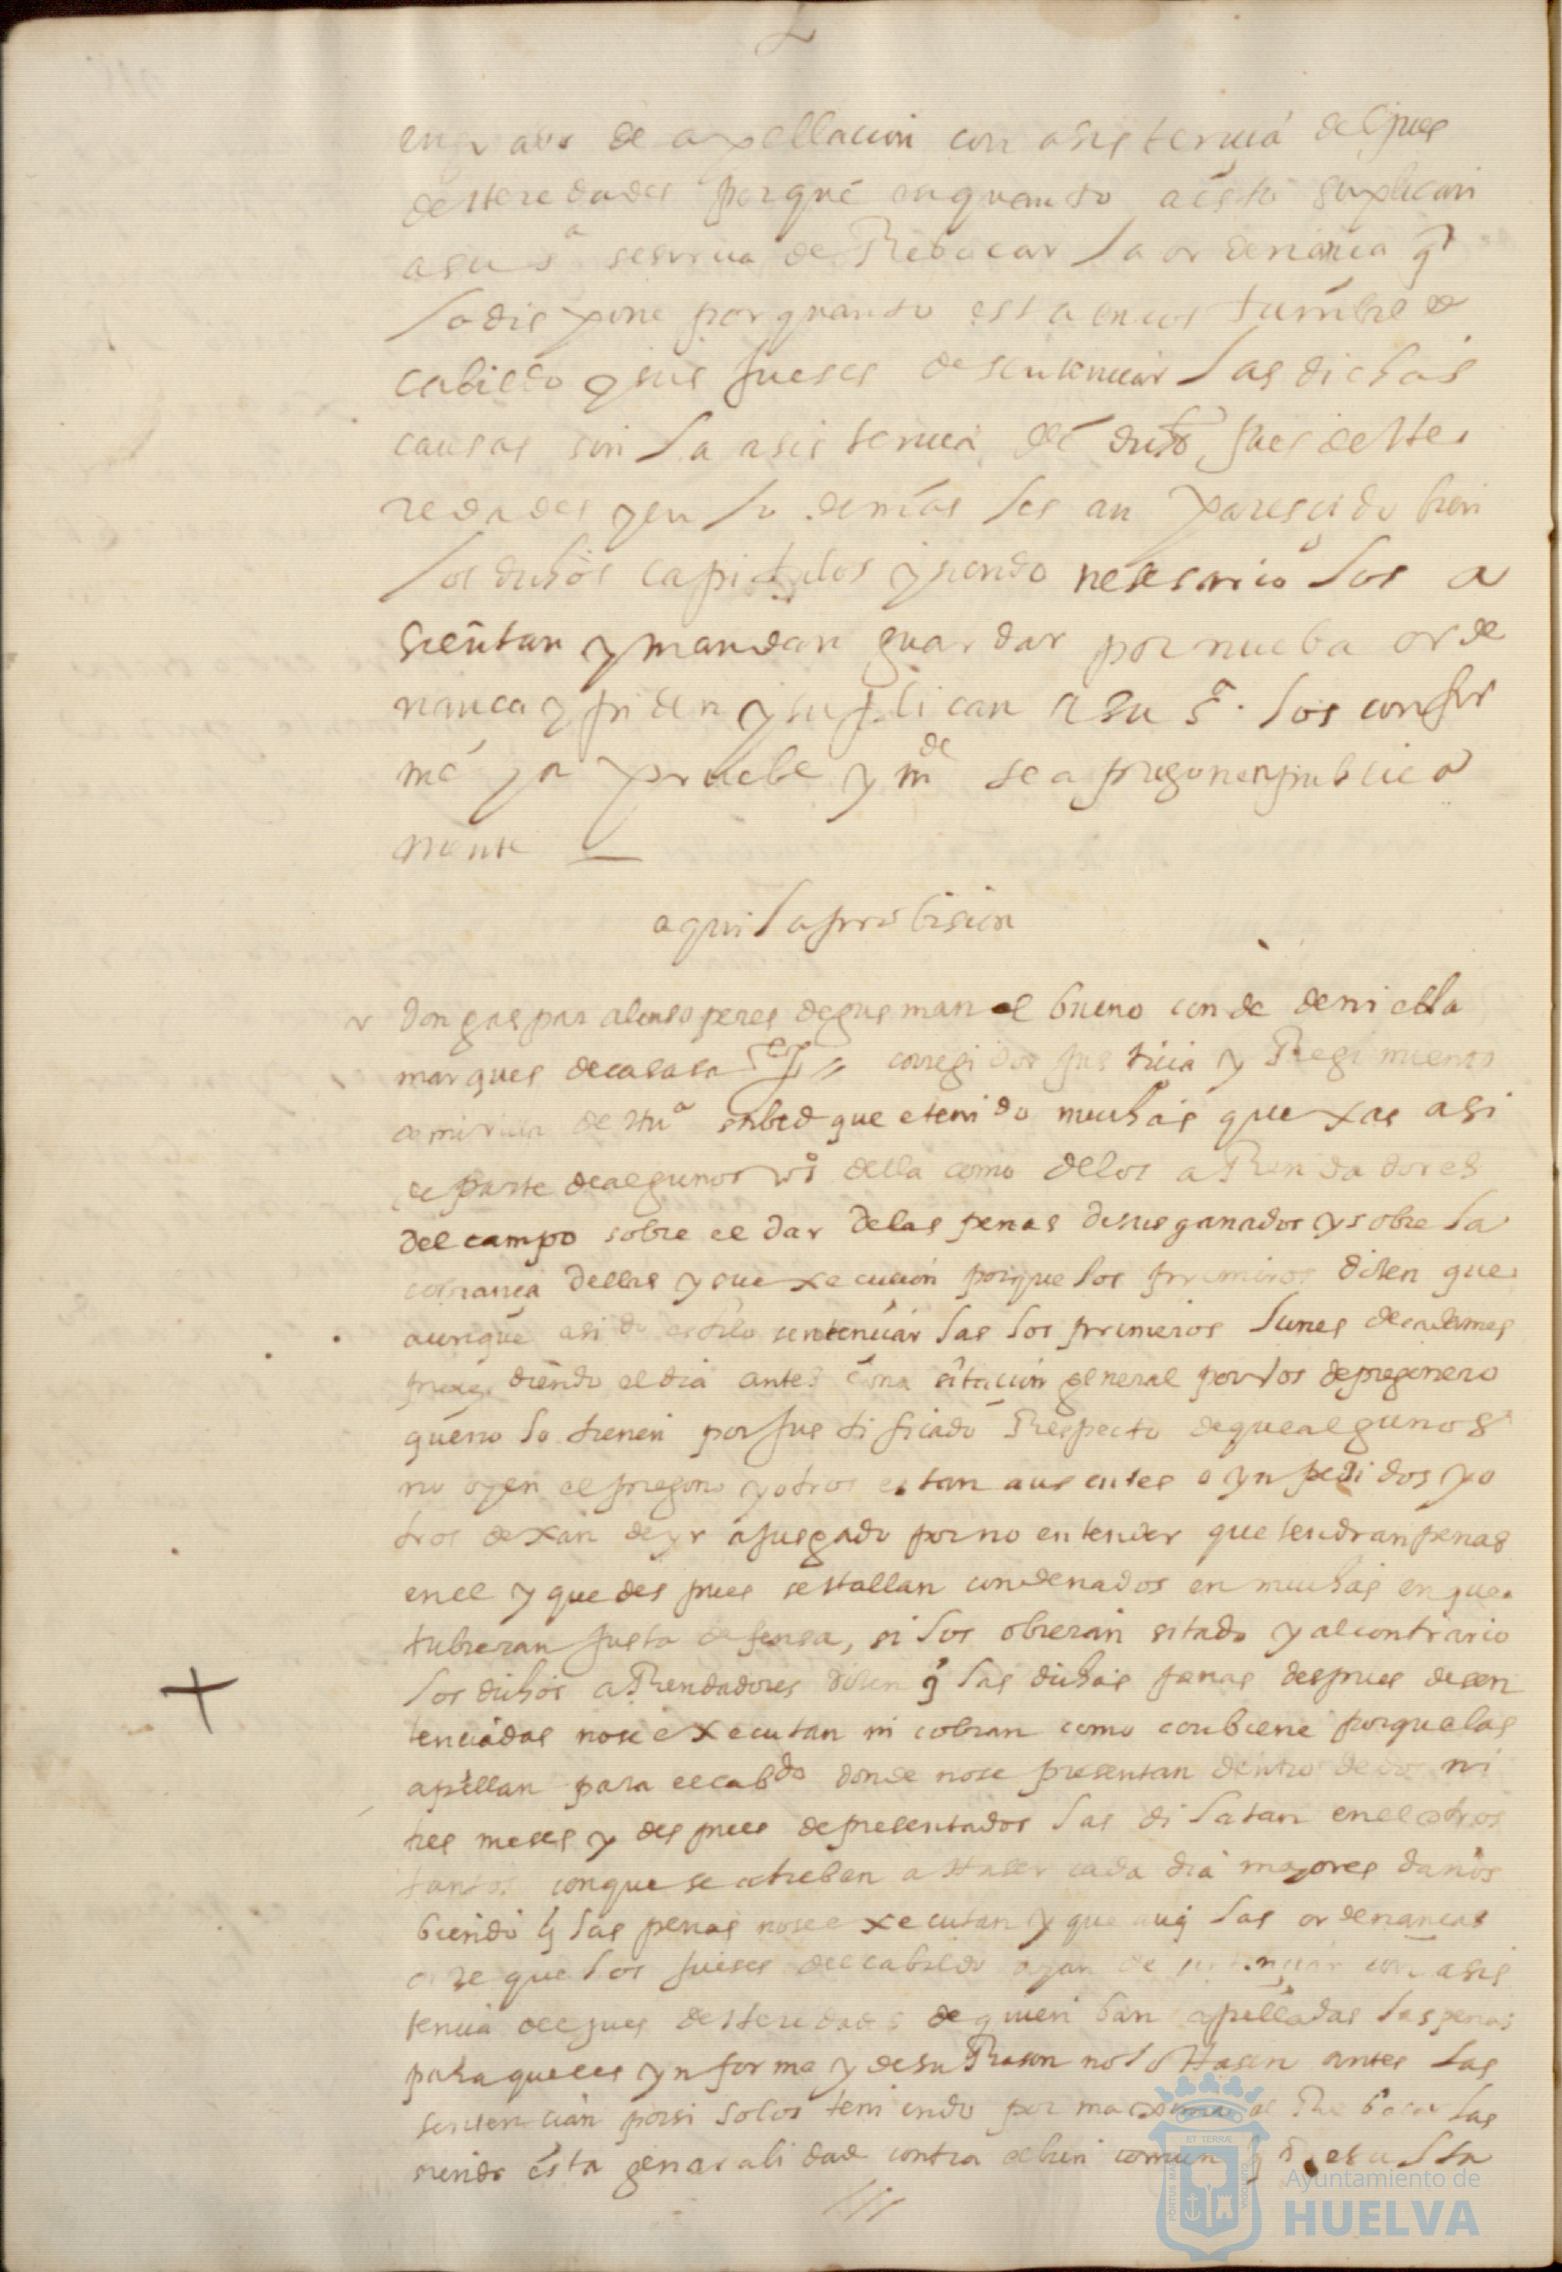 en grado de apellacion con asistencia del jues
de Heredades porque en quanto a esto suplican
a su sª se sirva de Rebocar la ordenanca q
lo dispone por quanto esta en costumbre el
cabildo y sus jueses de sentenciar las dichas
causas sin la asistencia del dicho jues de He
redades y en lo demas les an parescido bien
los dichos capitulos y siendo nesesario los a
sientan y mandan guardar por nueba orde
nanca y piden y suplican a su sª. los confir
me y a pruebe y mde se apregonen publica
mente
aqui la probision
don gaspar alonso peres de gusman el bueno conde de niebla
marques de casasa etª corregidor justicia y Regimiento
de mi villa de Huª sabed que e tenido muchas quexas asi
de parte de algunos vos della como de los aRendadores
del campo sobre el dar de las penas de sus ganados y sobre la
cobranca dellas y su execucion porque los primeros disen que
aunque a sido estilo sentenciar las los primeros lunes de cada mes
presediendo el dia antes una sitacion general por vos de pregonero
que no lo tienen por justificado Respecto de que algunos
no oyen el pregono y otros estan ausentes o ynpedidos y o
tros dexan de yr a jusgado por no entender que tendran penas
en el y que despues se Hallan condenados en muchas en que
tubieran justa defensa, si los obieran sitado y al contrario
los dichos aRendadores disen q las dichas penas despues de sen
tenciadas no se executan ni cobran como conbiene porque las
apellan para el cabdo donde no se presentan dentro de dos ni
tres meses y despues de presentados las dilatan en el otros
tantos con que se atreben a Haser cada dia mayores daños
biendo q las penas no se executan y que aunq las ordenancas
dise que los jueses del cabildo ayan de sentenciar con asis
tencia del jues de Heredades de quien ban apelladas las penas
para que les ynforme y de su Rason no lo Hasen antes las
sentencian por si solos teniendo por maxima el Rebocar las
siendo esta generalidad contra el bien comun q Resulta
ET TERRÆ
Ayuntamiento de
HUELVA